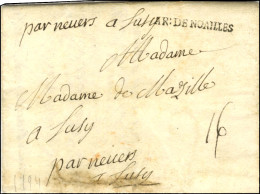 par nevers a Lusy AR: DE NOAILLES
Madame
Madame de Mazille
a Lusy 16
par nevers
a Lusy